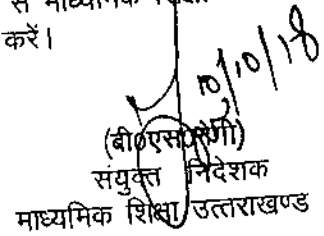 से माध्यमिक शिक्षा
करें।
10/10/18
(बी०एस०नेगी)
संयुक्त निदेशक
माध्यमिक शिक्षा उत्तराखण्ड